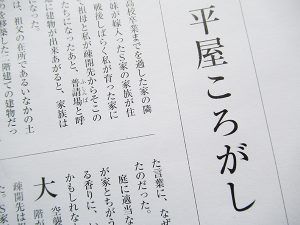 平屋ころがし
高校卒業までを過した家の隣
妹が嫁入ったS家の家族が住
戦後しばらく私が育った家に
祖母と私が疎開先からそこの
たちになったあと、普請場と呼
に建物が出来あがると、家族は
になった。
は、祖父の在所であるいなかの土
階建ての建物だっ
た言葉に、なぜ
たのだった。
庭に適当な
が家とちがう
る香りに、い
かもしれな
大
空襲
階が
疎開先は